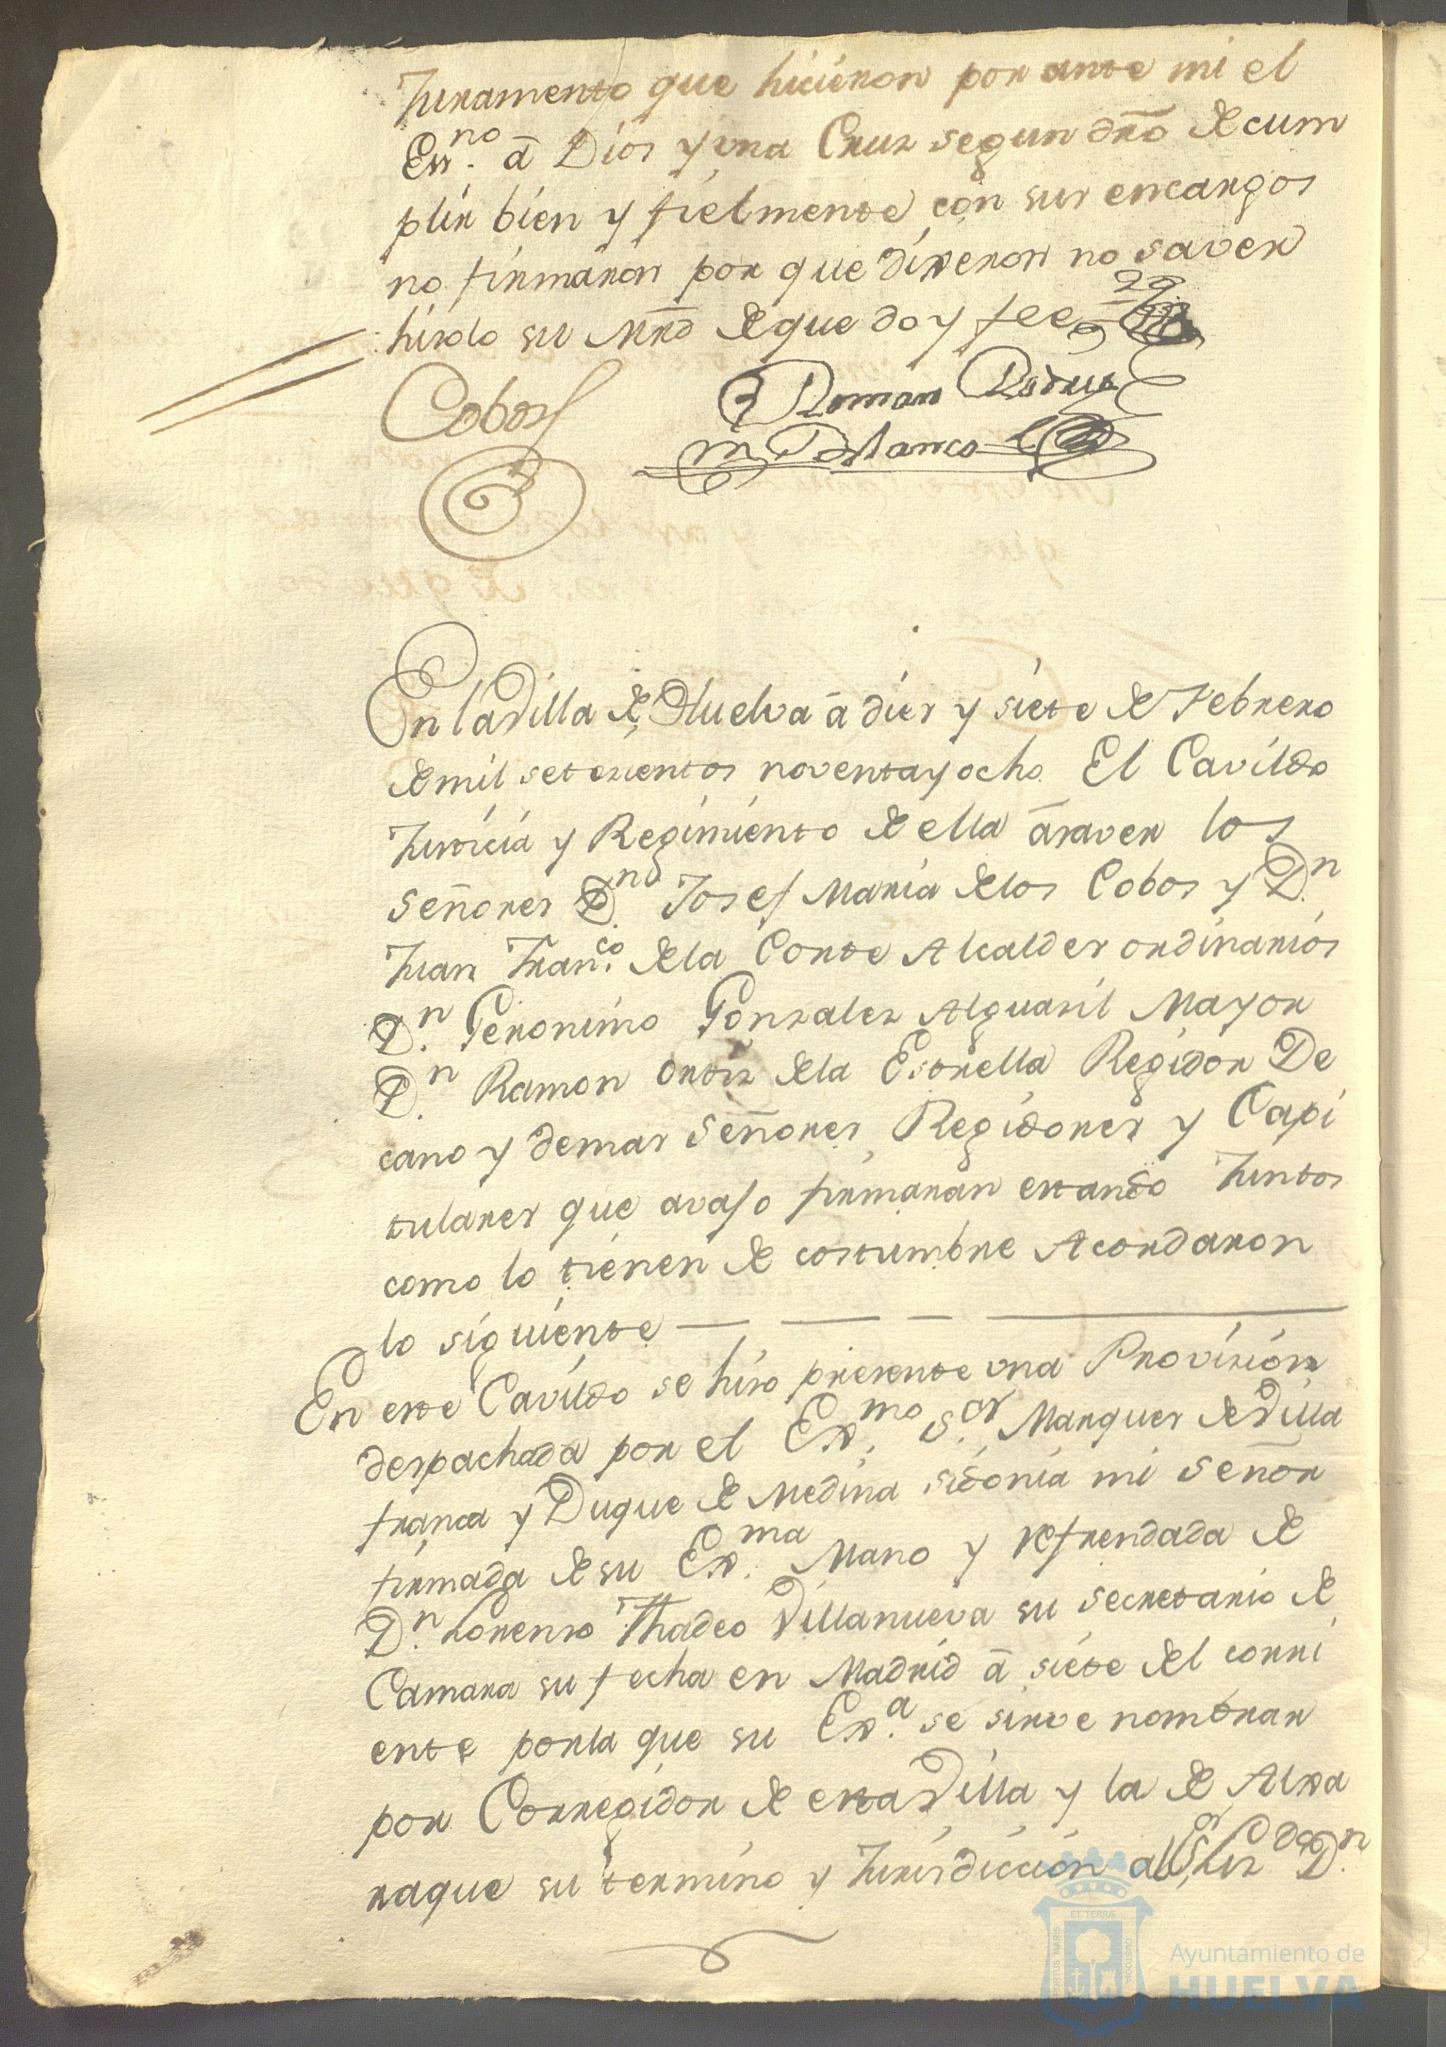 Juramento que hicieron por ante mi el
Essno. â Dios y una Cruz segun dro de cum
plir bien y fielmente con sus encargos
no firmaron por que dixeron no saver
hizolo su Mrd de que doy fee
Cobos
Roman Rodrig
Blanco
En la Villa de Huelva â diez y siete de Febrero
de mil setecientos noventa y ocho. El Cavildo
Justicia y Regimiento de ella âsaver los
Señores Dn. Josef Maria de los Cobos y Dn.
Juan Franco. de la Corte Alcaldes ordinarios
Dn. Geronimo Gonzales Alguasil Mayor
Dn. Ramon Ortiz de la Estrella Regidor De
cano y demas Señores Regidores y Capi
tulares que avajo firmaran estando Juntos
como lo tienen de costumbre Acordaron
lo siguiente
En este Cavildo se hizo presente una Provision
despachada por el Exmo. Sor. Marques de Villa
franca y Duque de Medina sidonia mi Señor
firmada de su Exma. Mano y refrendada de
Dn. Lorenzo Thadeo Villanueva su secretario de
Camara su fecha en Madrid â siete del corri
ente por la que su Exa. se sirve nombrar
por Corregidor de esta Villa y la de Alxa
raque su termino y Jurisdiccion al Sor Lizdo Dn.
PORTUS MARIS
ET TERRÆ
CUSTODIA
Ayuntamiento de
HUELVA